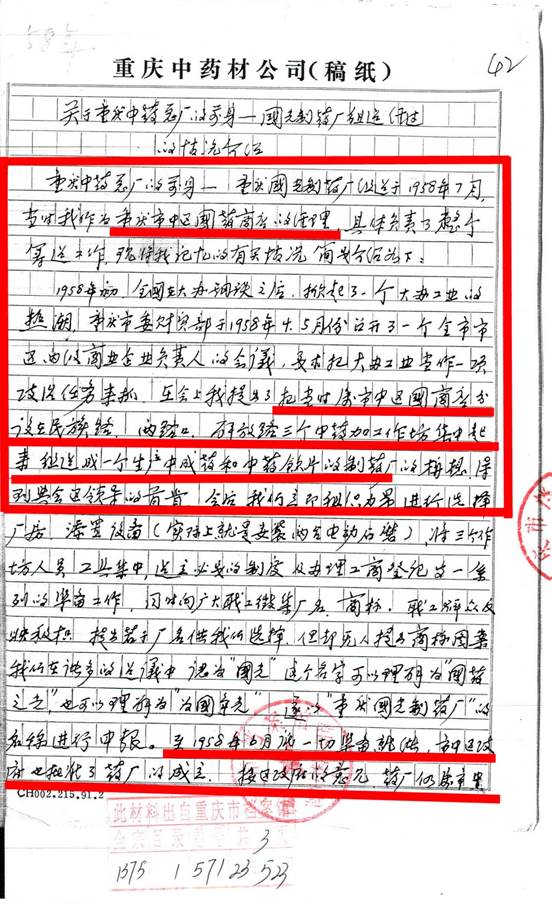 58年
42
重庆中药材公司(稿纸)
关于重庆中药总厂的前身—国光制药厂组建经过
的情况介绍
重庆中药总厂的前身—重庆國光制药厂组建于1958年7月,
当时我作为重庆市中区國药商店的经理,具体负责了整个
筹建工作,现仅我记忆的有关情况简要介绍如下:
1958年初,全國在大办钢铁之后,掀起了一个大办工业的
热潮,重庆市委财贸部于1958年4.5月份召开了一个全市市
区的商业企业负责人的会議,要求把大办工业当作一项
政治任务来抓,在会上我提出了把当时原市中区國商店分
设在民族路、两路口、解放路三个中药加工作坊集中起
来组建成一个生产中成药和中药饮片的制药厂的
到与会区领导的首肯,会后我们立即组织力量进行选择
厂房、添置设备(实际上就是安装两台电动石磨),将三个作
坊人员、工具集中,建立必要的制度及办理工商登记等一系
列的准备工作,同时向广大职工徵集厂名、商标,职工群众反
映积极,提出若干厂名供我们选择,但却无人提出商标图案
我们在许多的建議中,认为"國光"这个名字可以理解为"国药
之光",也可以理解为"为國争光",遂以"重庆國光制药厂"的
名称进行申报。至1958年6月底一切準备就绪,市中区政
府也批准了药厂的成立,按区政府的意见,药厂仍
CH002.215.91.2
此材料出自重庆市档案馆
全宗 目录 共 3 页
1375 1 571 23 523